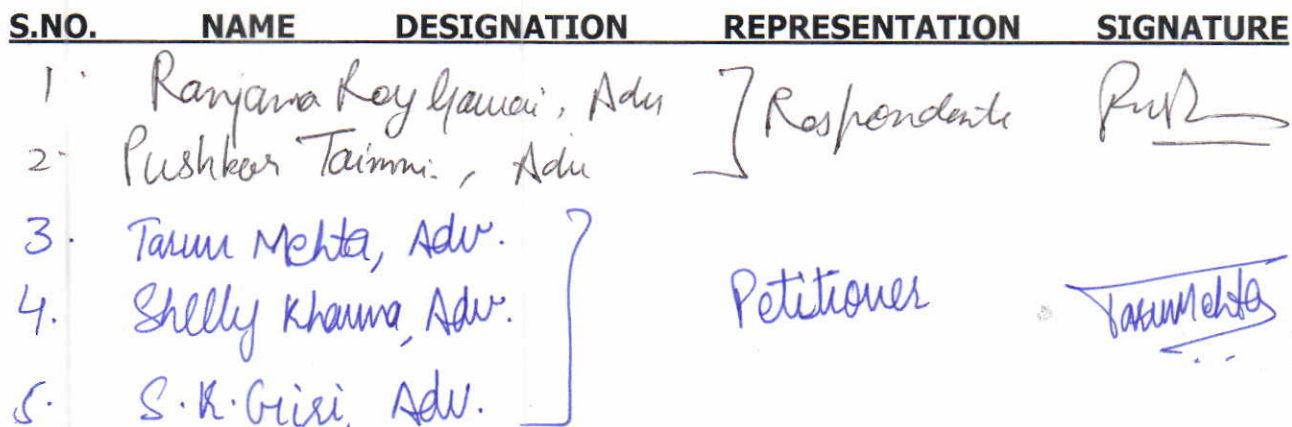 S.NO. NAME DESIGNATION REPRESENTATION SIGNATURE
1. Ranjana Roy Gawai, Adv ] Respondents
2. Pushkar Taimni, Adv
3. Tarun Mehta, Adv.
4. Shelly Khanna, Adv. Petitioner Tarun Mehta
5. S.K. Giri, Adv.